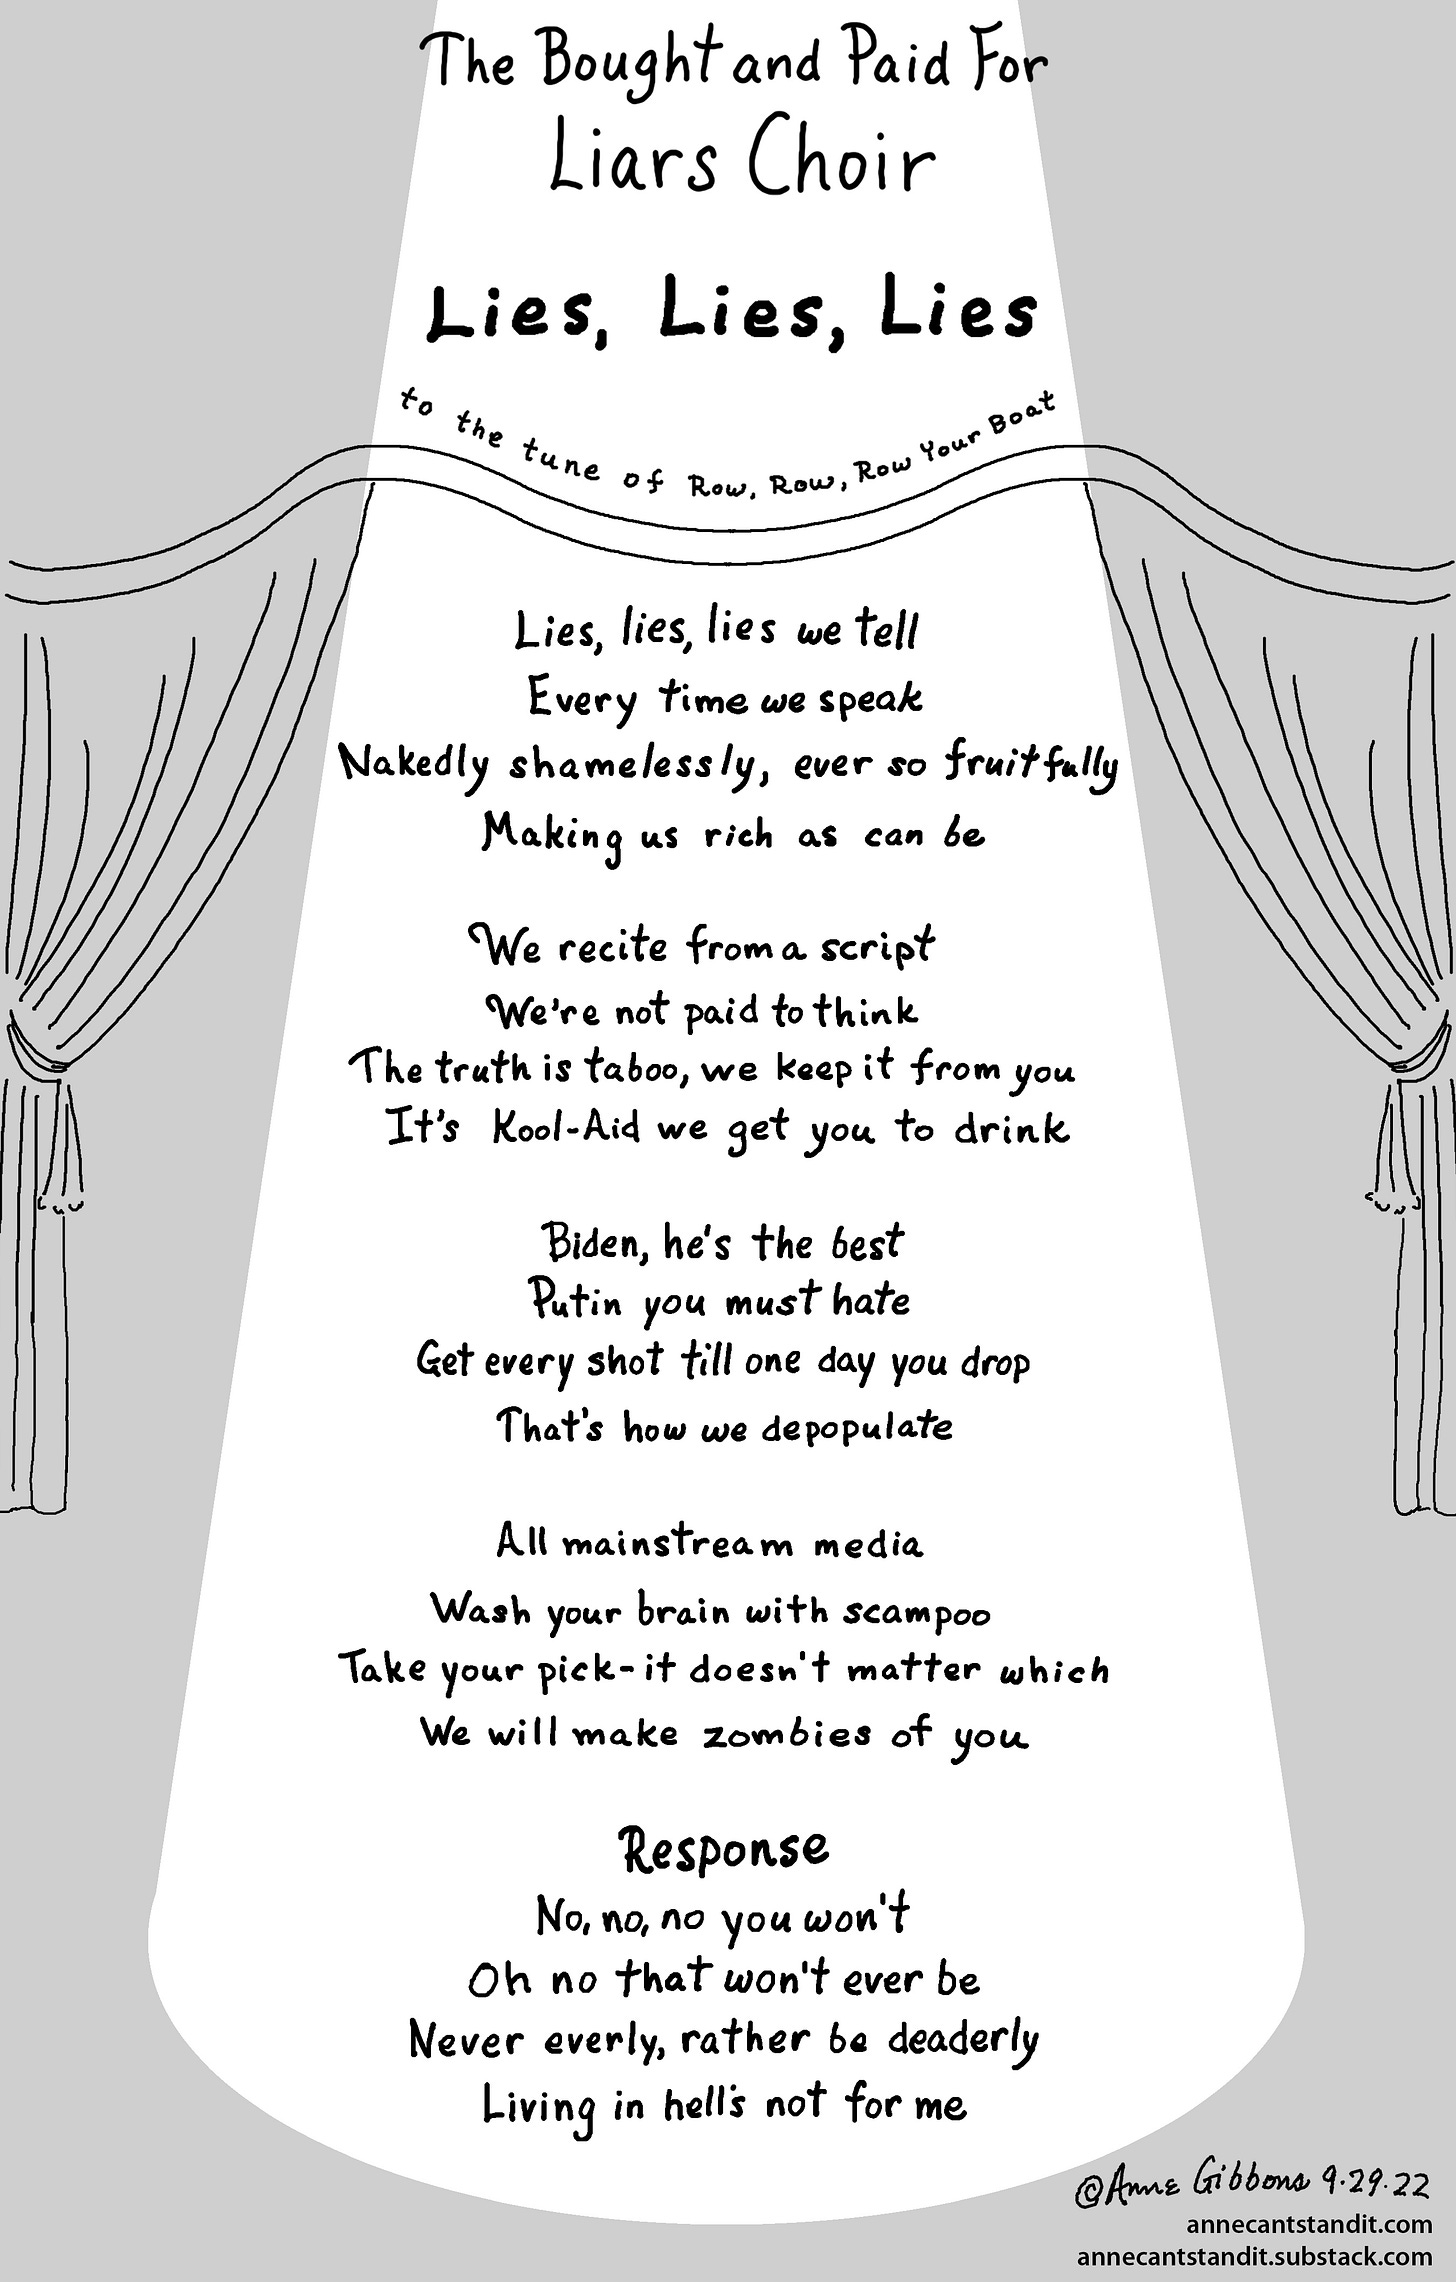 The Bought and Paid For
Liars Choir
Lies, Lies, Lies
to the tune of Row, Row, Row Your Boat
Lies, lies, lies we tell
Every time we speak
Nakedly shamelessly, ever so fruitfully
Making us rich as can be
We recite from a script
We're not paid to think
The truth is taboo, we keep it from you
It's Kool-Aid we get you to drink
Biden, he's the best
Putin you must hate
Get every shot till one day you drop
That's how we depopulate
All mainstream media
Wash your brain with scampoo
Take your pick-it doesn't matter which
We will make zombies of you
Response
No, no, no you won't
Oh no that won't ever be
Never everly, rather be deaderly
Living in hell's not for me
©Anne Gibbons 9.29.22
annecantstandit.com
annecantstandit.substack.com